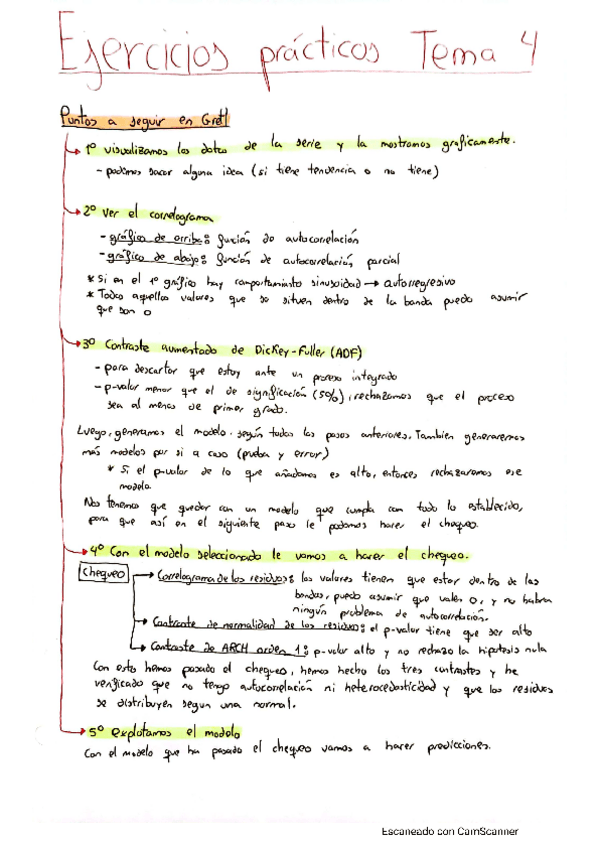 Ejercicios prácticos Tema 4
Puntos a seguir en Gretl
1º visualizamos los datos de la serie y la mostramos graficamente.
- podemos sacar alguna idea (si tiene tendencia o no tiene)
2º Ver el correlograma
- gráfico de arriba: función de autocorrelación
- gráfico de abajo: función de autocorrelación parcial
* Si en el 1º gráfico hay comportamiento sinusoidad → autorregresivo
* Todos aquellos valores que se situen dentro de la banda puedo asumir
que son 0
3º Contraste aumentado de Dickey-Fuller (ADF)
- para descartar que estoy ante un proceso integrado
- p-valor menor que el de significación (5%), rechazamos que el proceso
sea al menos de primer grado.
Luego, generamos el modelo. según todos los pasos anteriores. Tambien generaremos
más modelos por si a caso (prueba y error)
* Si el p-valor de lo que añadamos es alto, entonces rechazaremos ese
modelo.
Nos tenemos que quedar con un modelo que cumpla con todo lo establecido,
para que así en el siguiente paso le podamos hacer el chequeo.
4º Con el modelo seleccionado le vamos a hacer el chequeo.
Chequeo → Correlograma de los residuos: los valores tienen que estar dentro de las
bandas, puedo asumir que valen 0, y no habrá
ningún problema de autocorrelación.
→ Contraste de normalidad de los residuos: el p-valor tiene que ser alto
→ Contraste de ARCH orden 1: p-valor alto y no rechazo la hipótesis nula
Con esto hemos pasado el chequeo, hemos hecho los tres contrastes y he
verificado que no tengo autocorrelación ni heterocedasticidad y que los residuos
se distribuyen segun una normal.
5º explotamos el modelo
Con el modelo que ha pasado el chequeo vamos a hacer predicciones.
Escaneado con CamScanner